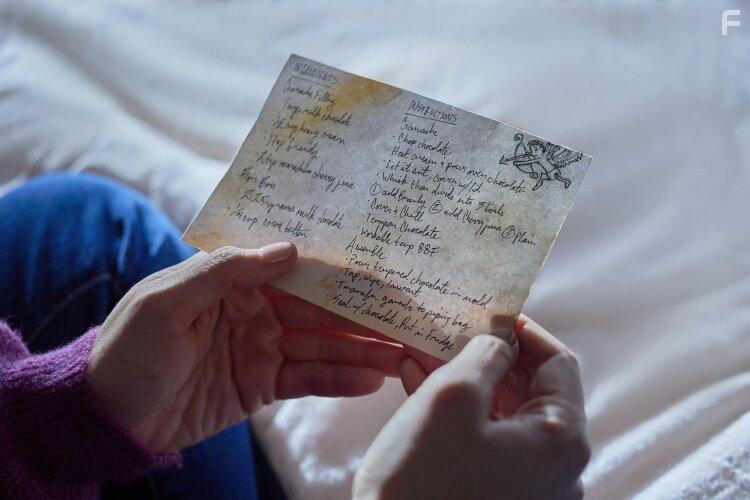 INGREDIENTS
Ganache Filling
cups milk chocolate
cup heavy cream
1 tsp brandy
2 tsp maraschino cherry juice
Bon Bon
225 grams milk chocolate
cup cocoa butter
INSTRUCTIONS
Ganache
Chop chocolate
Heat cream & pour over chocolate
Let it sit, cover w/ lid
Whisk then divide into 3 bowls
① add Brandy ② add Cherry juice ③ plain
Cover & Chill
Temper Chocolate
Workable temp 88F
Assemble
Pour tempered chocolate in mold
Tap, wipe, invert
Transfer ganache to piping bag
Seal w/ chocolate, Put in Fridge
F